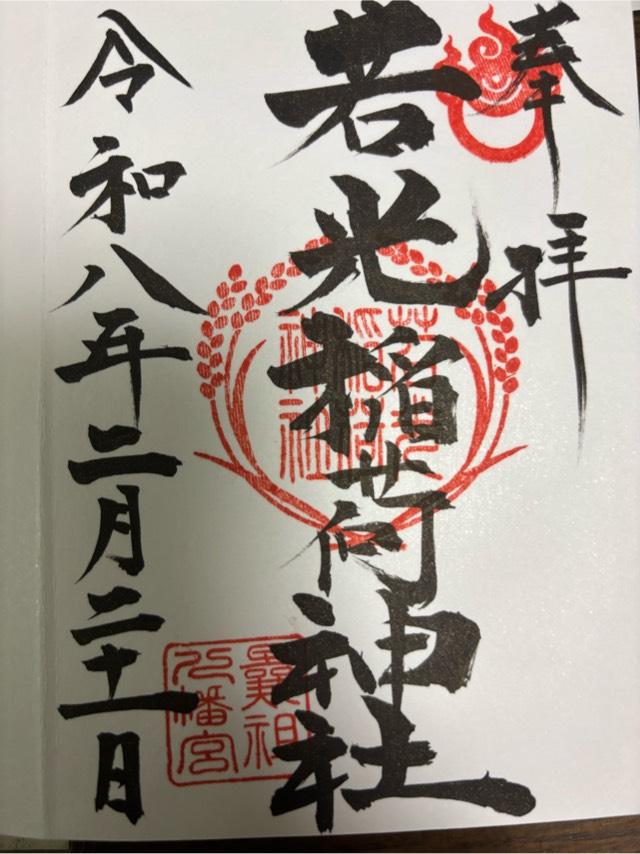 奉拝
若光稲荷神社
若光
稲荷
神社
曩祖
八幡宮
令和八年二月二十一日